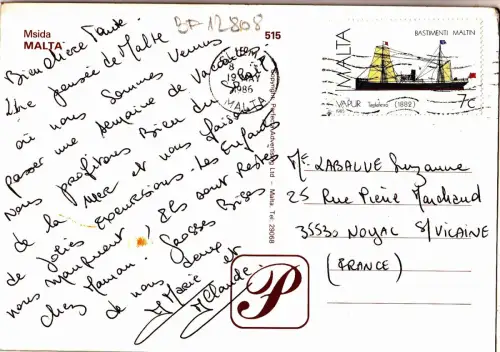 Msida
MALTA
BF12808
515
Bien chère Tante.
Une pensée de Malte
où nous sommes venus
passer une semaine de Vacances.
Nous profitons Bien du Soleil
de la MER et nous faisons
de jolies Excursions. Les Enfants
nous manquent ! Ils sont Restés
chez Maman. Grosses Bises
de nous deux
M Marie et
M Claude
MALTA
1986
MALTA
MALTA
BASTIMENTI MALTIN
VAPUR Tagliaferro (1882)
7c
Copyright Perfecta Advertising Ltd - Malta. Tel: 28068
Me LABAUVE Suzanne
25 Rue Pierre Marchand
35530 NOYAL S/VILAINE
(FRANCE)
P